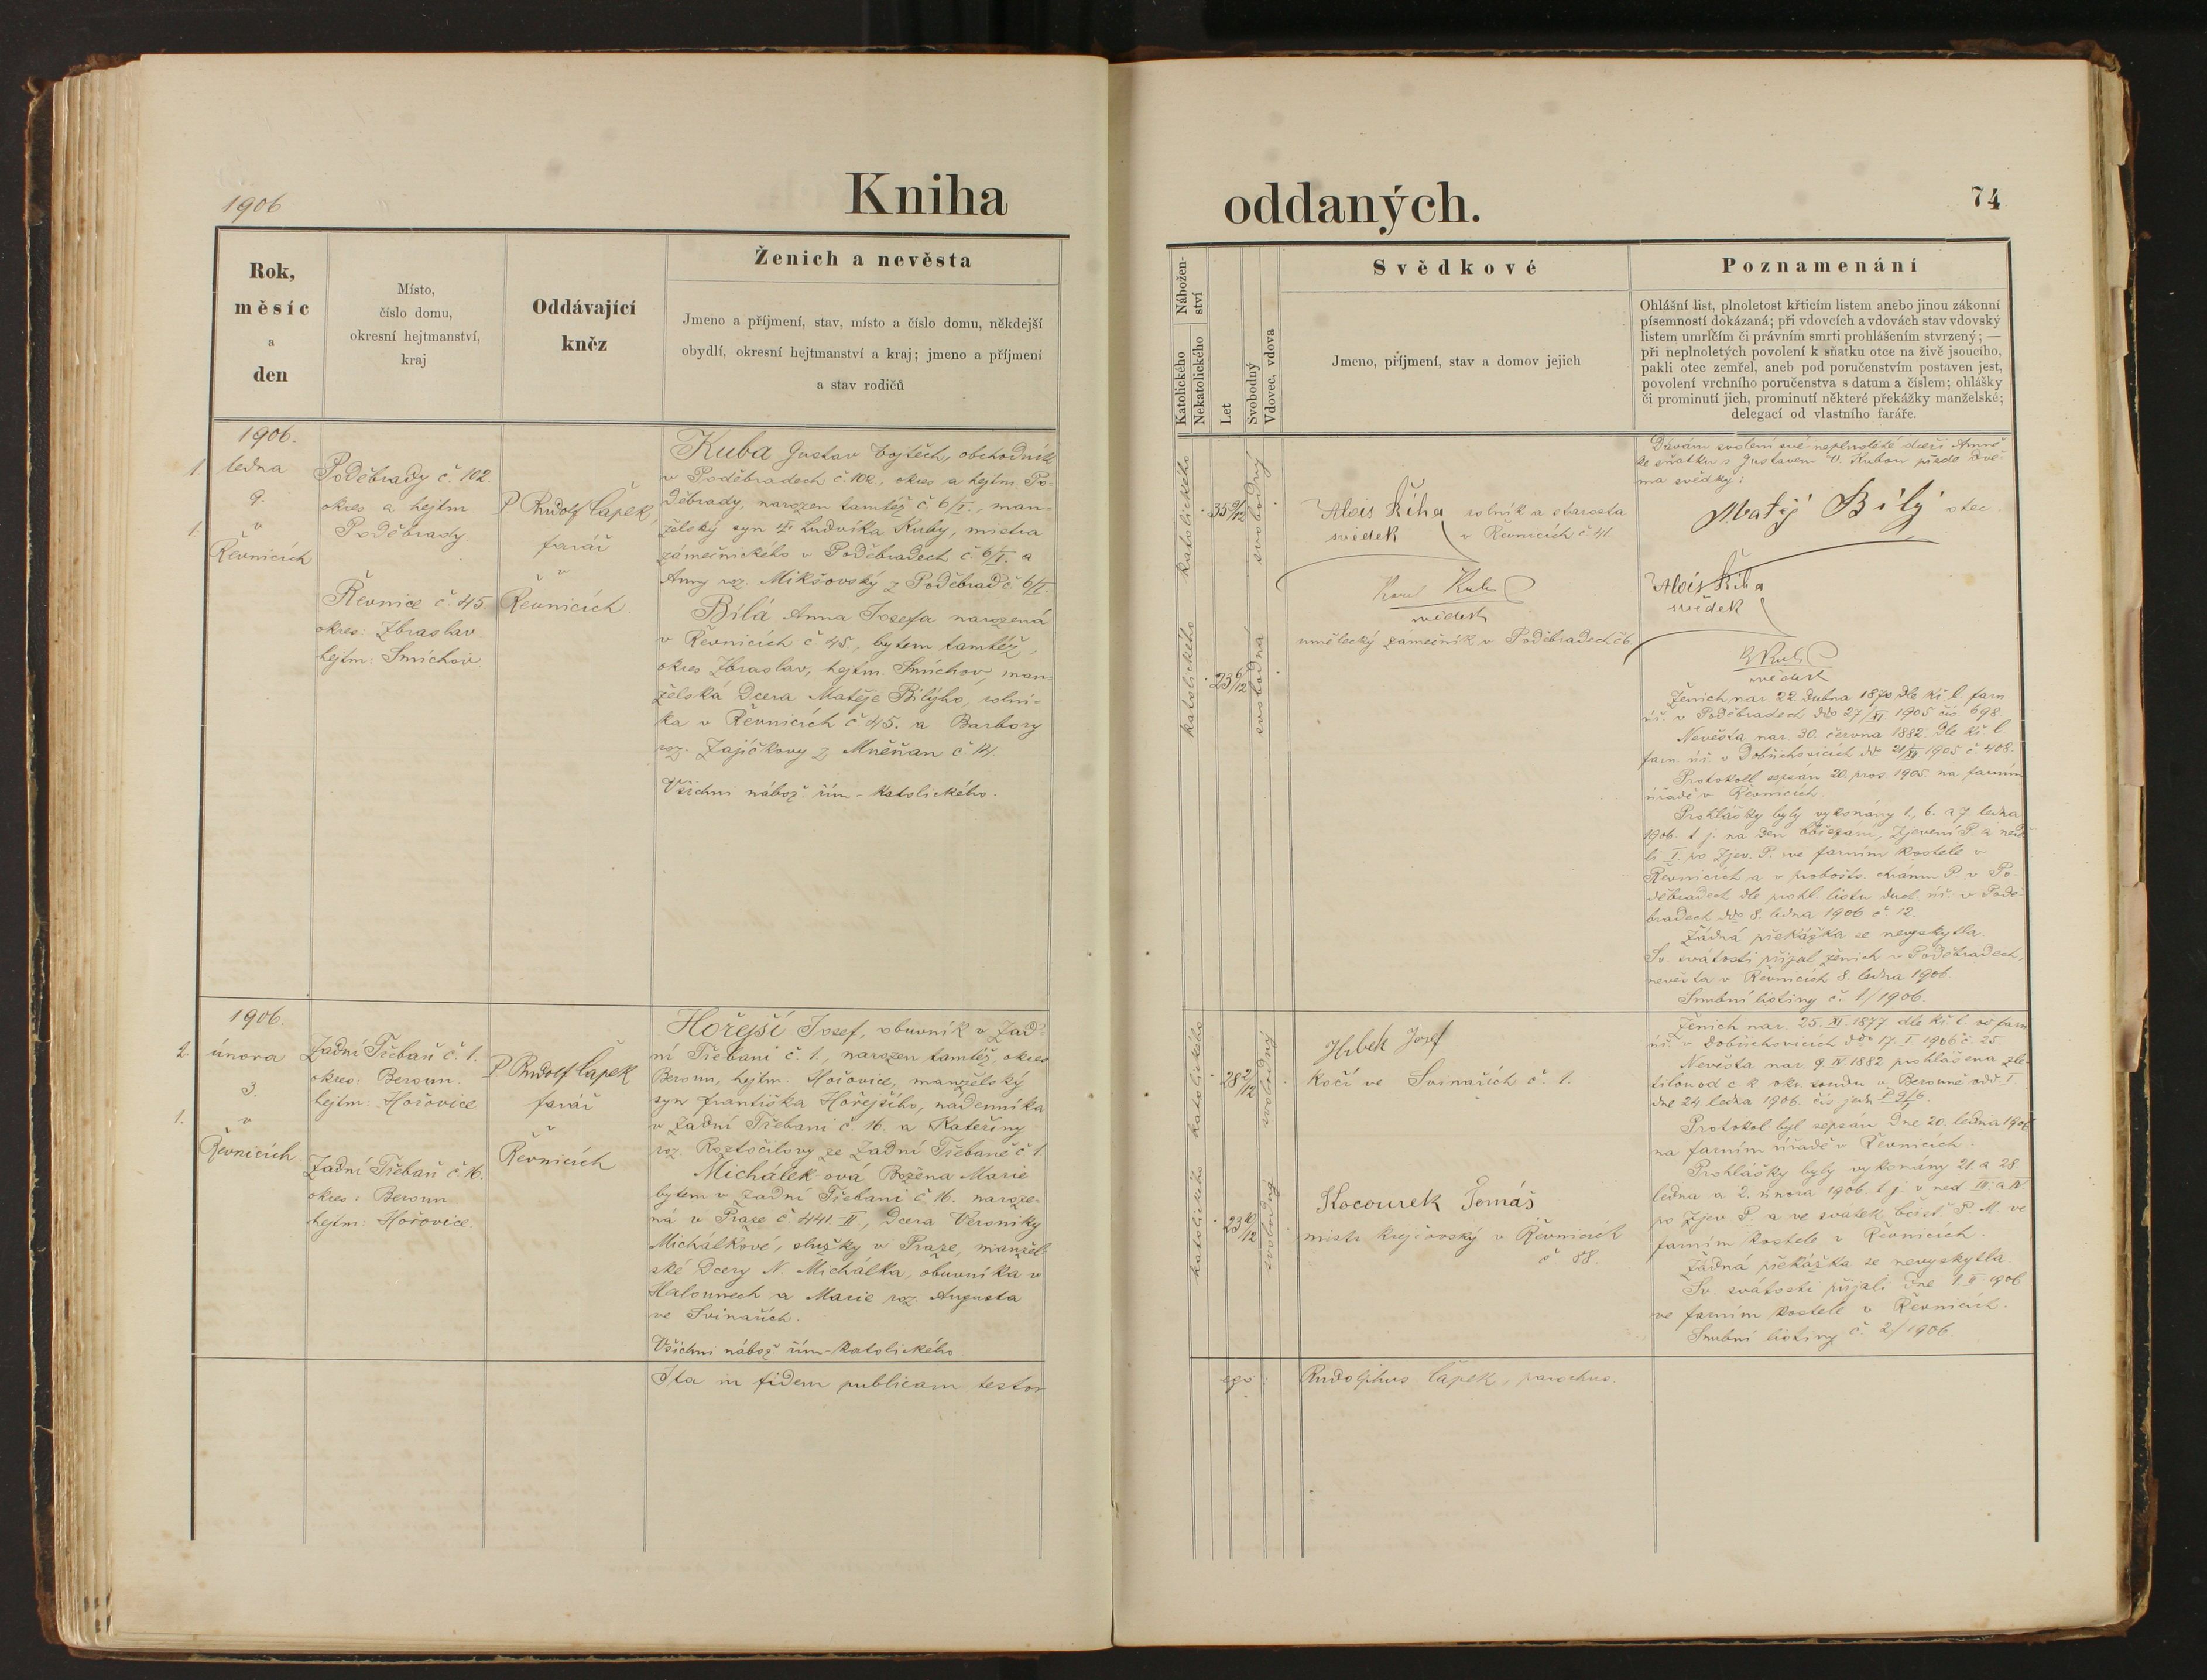 1906
Kniha
Rok,
měsíc
a
den
Místo,
číslo domu,
okresní hejtmanství,
kraj
Oddávající
kněz
Ženich a nevěsta
Jmeno a příjmení, stav, místo a číslo domu, někdejší
obydlí, okresní hejtmanství a kraj; jmeno a příjmení
a stav rodičů
1906.
1 ledna
9.
1. v
Řevnicích
Poděbrady č. 102.
okres a hejtm
Poděbrady.
Řevnice č. 45
okres: Zbraslav.
hejtm: Smíchov.
P Rudolf Čapek,
farář
v
Řevnicích.
Kuba Gustav Vojtěch, obchodník
v Poděbradech č. 102, okres a hejtm. Po-
děbrady, narozen tamtéž č. 6/I., man-
želský syn Ludvíka Kuby, mistra
zámečnického v Poděbradech č. 6/I. a
Anny roz. Mikšovský z Poděbrad č 6/I.
Bílá Anna Josefa narozená
v Řevnicích č. 45., bytem tamtéž,
okres Zbraslav, hejtm. Smíchov, man-
želská dcera Matěje Bílýho, rolní-
ka v Řevnicích č 45. a Barbory
roz. Zajíčkovy z Mněňan č 14.
Všichni nábož. řím-katolického.
1906.
2. února
3.
1. v
Řevnicích.
Zadní Třebaň č. 1.
okres: Beroun.
hejtm: Hořovice
Zadní Třebaň č. 16.
okres: Beroun
hejtm: Hořovice.
P Rudolf Čapek
farář
v
Řevnicích
Hořejší Josef, obuvník v Zad-
ní Třebani č. 1., narozen tamtéž, okres
Beroun, hejtm. Hořovice, manželský
syn Františka Hořejšího, nádenníka
v Zadní Třebani č. 16. a Kateřiny
roz. Roztočilovy ze Zadní Třebaně č 1
Michálek ová Božena Marie
bytem v Zadní Třebani č. 16. naroze-
ná v Praze č. 441-II, dcera Veroniky
Michálkové, služky v Praze, manžel-
ské dcery N. Michálka, obuvníka v
Halounech a Marie roz. Augusta
ve Svinařích.
Všichni nábož. řím-katolického
Ita in fidem publicam testor
oddaných.
74
Nábožen-
ství
Katolického
Nekatolického
Let
Svobodný
Vdovec, vdova
Svědkové
Jmeno, příjmení, stav a domov jejich
Poznamenání
Ohlášní list, plnoletost křticím listem anebo jinou zákonní
písemností dokázaná; při vdovcích a vdovách stav vdovský
listem umrlčím či právním smrti prohlášením stvrzený; —
při neplnoletých povolení k sňatku otce na živě jsoucího,
pakli otec zemřel, aneb pod poručenstvím postaven jest,
povolení vrchního poručenstva s datum a číslem; ohlášky
či prominutí jich, prominutí některé překážky manželské;
delegací od vlastního faráře.
katolického
35 9/12
svobodný
katolického
23 6/12
svobodna
Alois Říha rolník a starosta
svědek v Řevnicích č 41.
Karel Kuba
svědek
umělecký zámečník v Poděbradech č 6
Dávám svolení své neplnoleté dceři Anně
ke sňatku s Gustavem V. Kubou přede dvě-
ma svědky:
Matěj Bílý otec.
Alois Říha
svědek
K Kuba
svědek
Ženich nar. 22. dubna 1870 dle kř. l. farn
úř. v Poděbradech dto 27/XI 1905 čís. 698.
Nevěsta nar. 30. června 1882. dle kř l.
farn. úř. v Dobřichovicích dto 21/XI 1905 č 408.
Protokoll sepsán 20. pros. 1905. na farním
úřadě v Řevnicích.
Prohlášky byly vykonány 1., 6. a 7. ledna
1906. t. j. na den Obřezání, Zjevení P. a nedě-
li I. po Zjev. P. ve farním kostele v
Řevnicích a v probošts. chrámu P. v Po-
děbradech dle prohl. listu duch. úř. v Podě-
bradech dto 8. ledna 1906 č. 12.
Žádná překážka se nevyskytla.
Sv. svátosti přijal ženich v Poděbradech,
nevěsta v Řevnicích 8. ledna 1906.
Snubní listiny č. 1/1906.
katolického
28 2/12
svobodný
katolického
23
svobodný
Hrbek Josef
kočí ve Svinařích č. 1.
Kocourek Tomáš
mistr krejčovský v Řevnicích
č 88.
Ženich nar. 25. XI. 1877 dle kř. l. od farn
úř. v Dobřichovicích ddo 17. I. 1906 č. 25.
Nevěsta nar. 9. IV. 1882 prohlášena zle-
tilou od c. k. okr. soudu v Berouně odd. I
dne 24 ledna 1906. čís. jedn
Protokol byl sepsán dne 20. ledna 1906
na farním úřadě v Řevnicích.
Prohlášky byly vykonány 21. a 28.
ledna a 2. února 1906. t. j. v ned. III. a IV.
po Zjev. P. a ve svátek očišt. P. M. ve
farním kostele v Řevnicích.
Žádná překážka se nevyskytla
Sv. svátosti přijali dne 1. II 1906
ve farním kostele v Řevnicích.
Snubní listiny č. 2/1906
ego
Rudolphus Čapek, parochus.